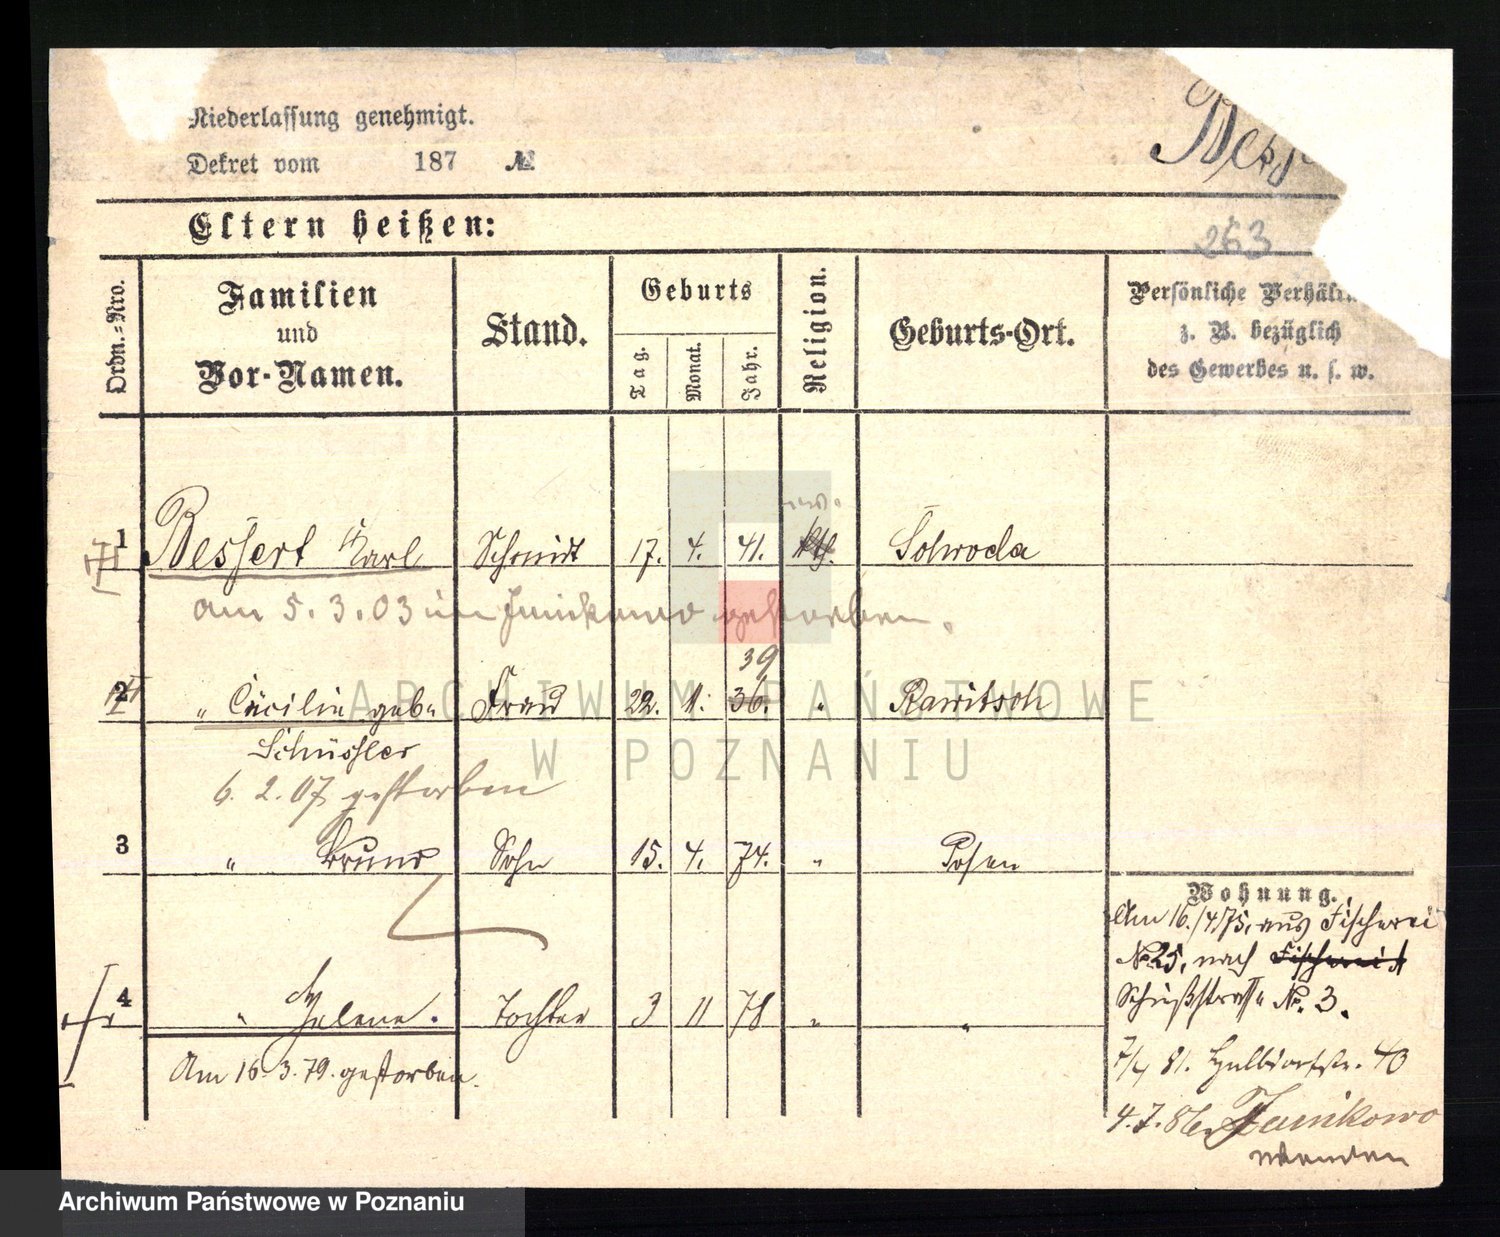 Niederlassung genehmigt.
Dekret vom 187 №
Bess
Eltern heißen:
263
Ordn.-Nro.
Familien und Vor-Namen.
Stand.
Geburts
Tag.
Monat.
Jahr.
Religion.
Geburts-Ort.
Persönliche Verhält
z. B. bezüglich
des Gewerbes u. s. w.
1 Bessert Karl Schmidt 17. 4. 41. kth. Sowoda
am 5.3.03 in Junikowo gestorben.
39
2 " Cäcilie geb. Frau 22. 11. 36. " Rawitsch
Schüssler
6. 2. 07 gestorben
3 " Bruno Sohn 15. 4. 74. " Posen
Wohnung.
Am 16./4.75. aus Fischerei
№ 25, nach Fischerei
Schußstraße № 3.
4 " Helene. Tochter 3 11 78 " "
Am 16.3.79. gestorben.
7/4 81. Halbdorfstr. 40
4.7.86 Junikowo
wenden
ARCHIWUM PAŃSTWOWE
W POZNANIU
Archiwum Państwowe w Poznaniu